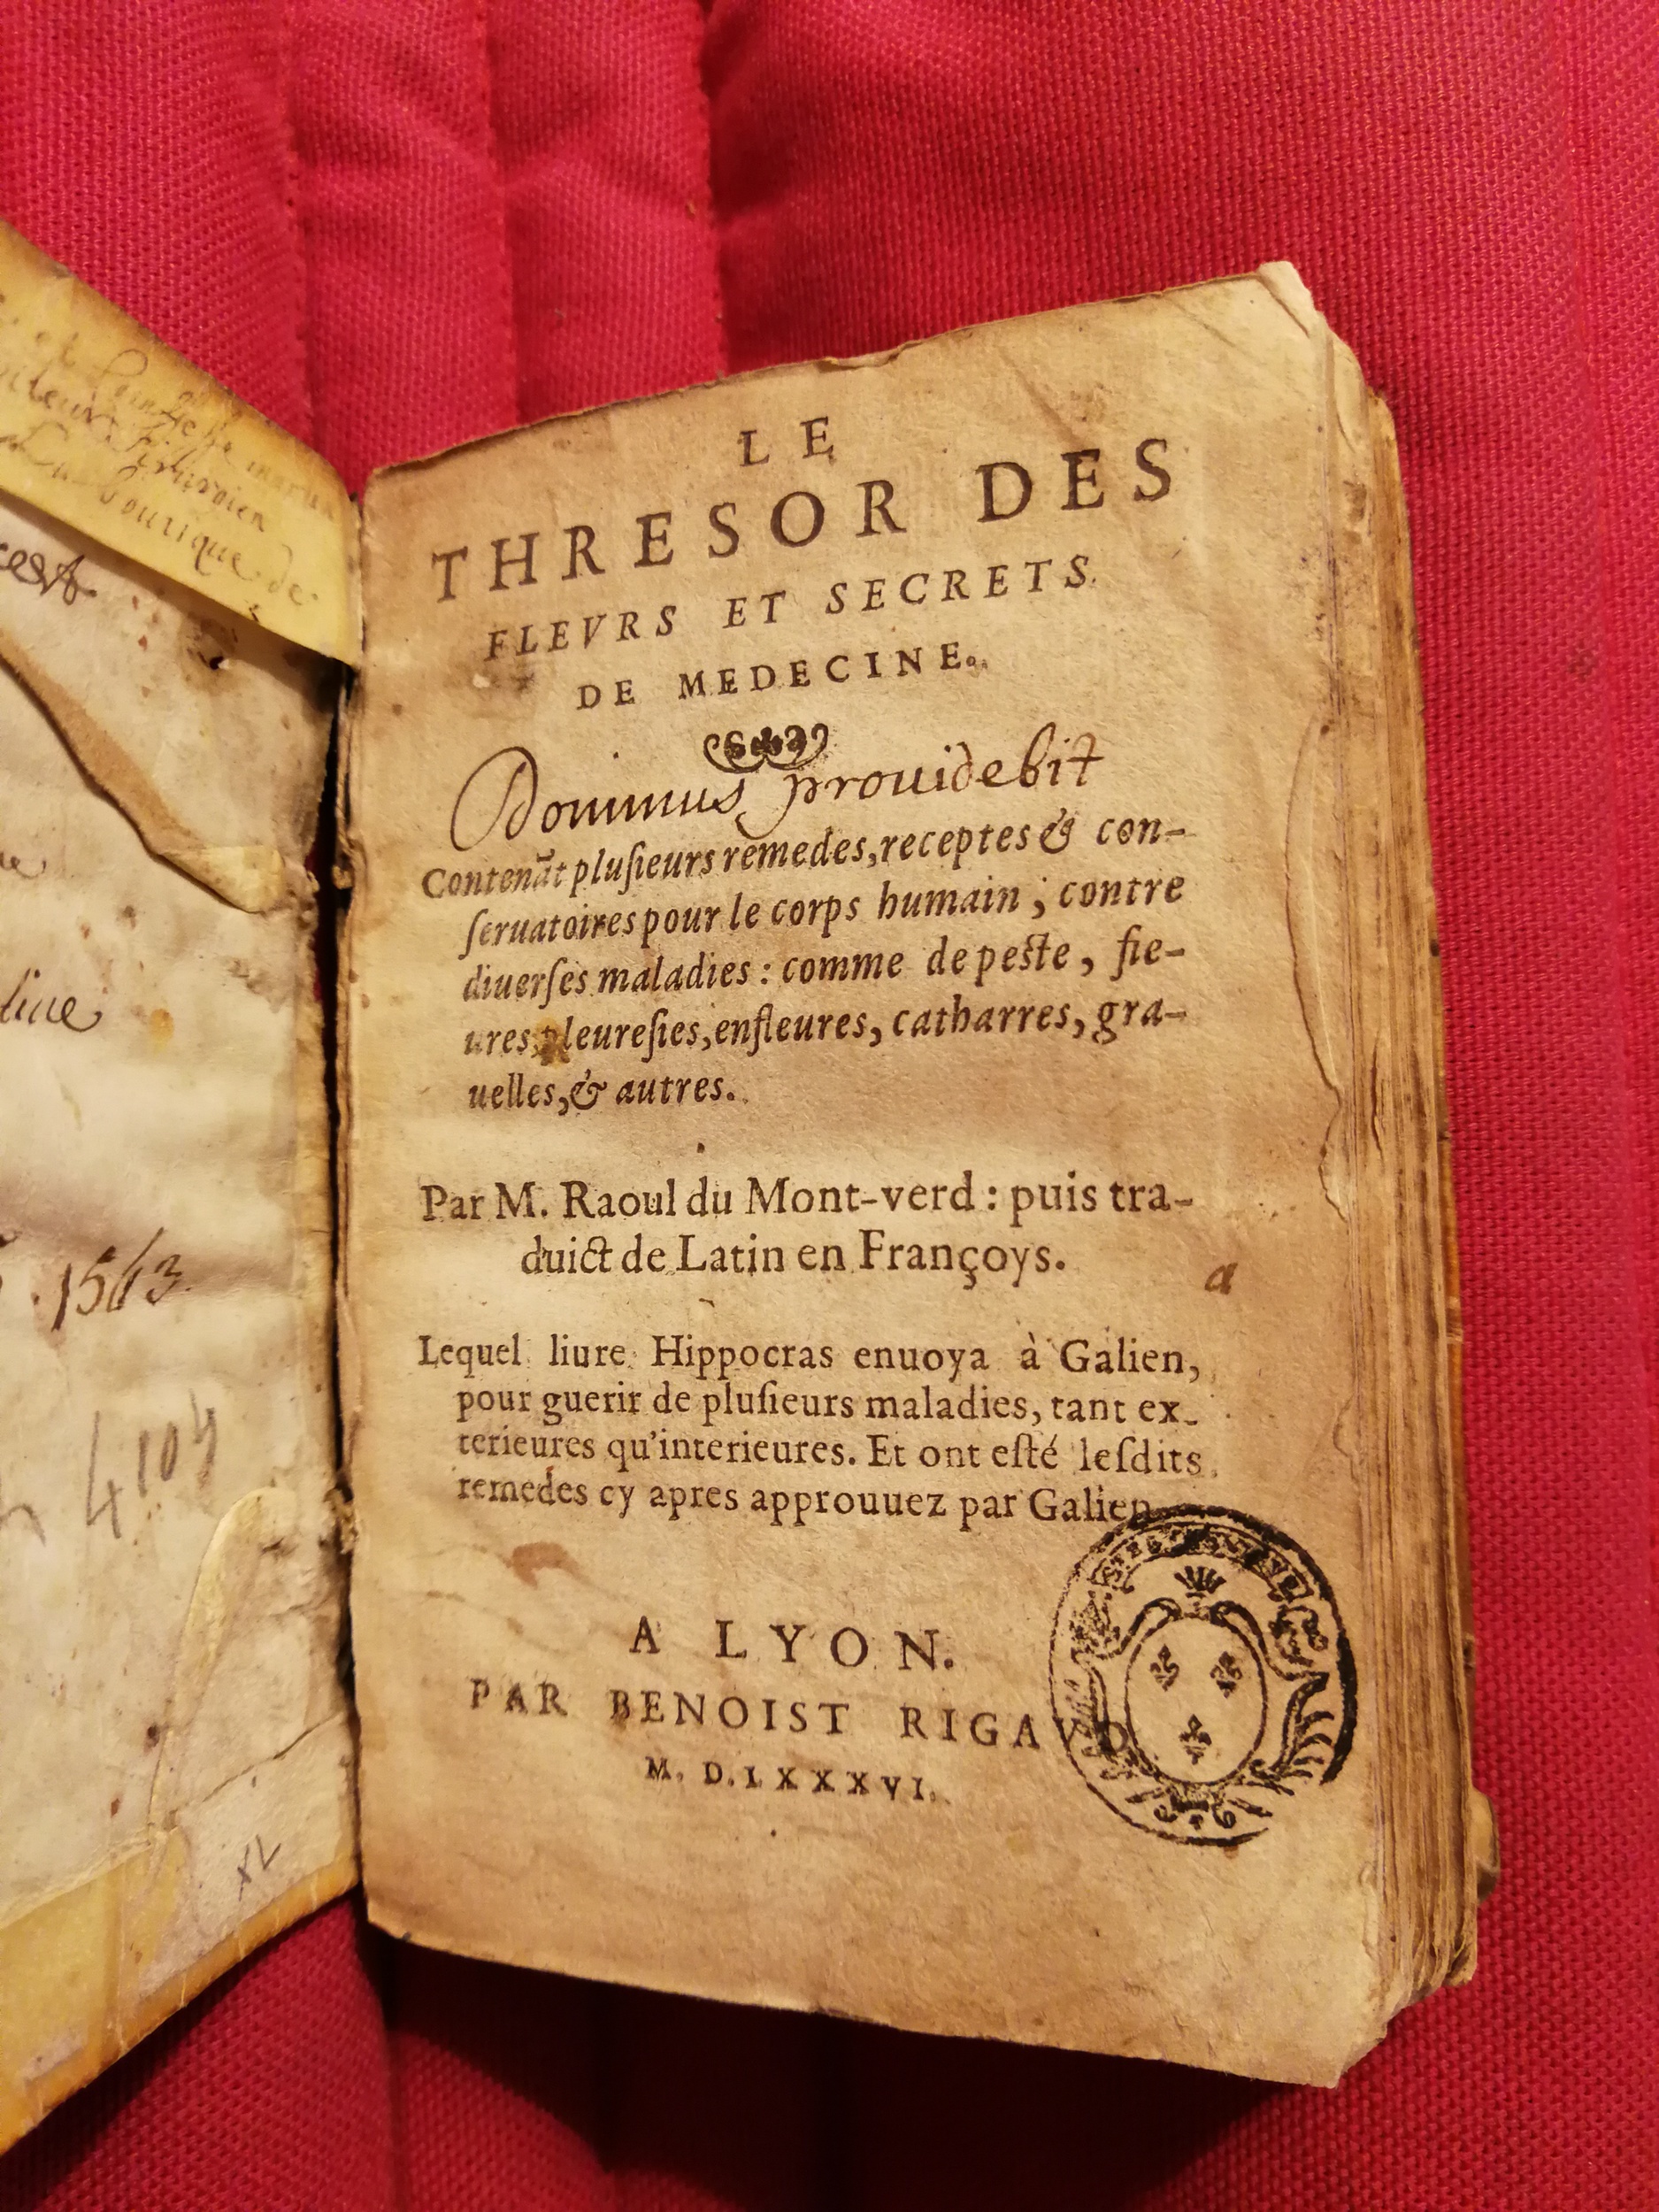 chirurgien
boutique de
.1563.
4109
XL
LE
THRESOR DES
FLEVRS ET SECRETS
DE MEDECINE.
Dominus prouidebit
Contenãt pluſieurs remedes, receptes & con-
ſeruatoires pour le corps humain ; contre
diuerſes maladies : comme de peſte, fie-
ures, pleureſies, enfleures, catharres, gra-
uelles, & autres.
Par M. Raoul du Mont-verd : puis tra-
duict de Latin en Françoys.
a
Lequel liure Hippocras enuoya à Galien,
pour guerir de pluſieurs maladies, tant ex-
terieures qu'interieures. Et ont eſté leſdits
remedes cy apres approuuez par Galien
A LYON.
PAR BENOIST RIGAVD
M. D. LXXXVI.